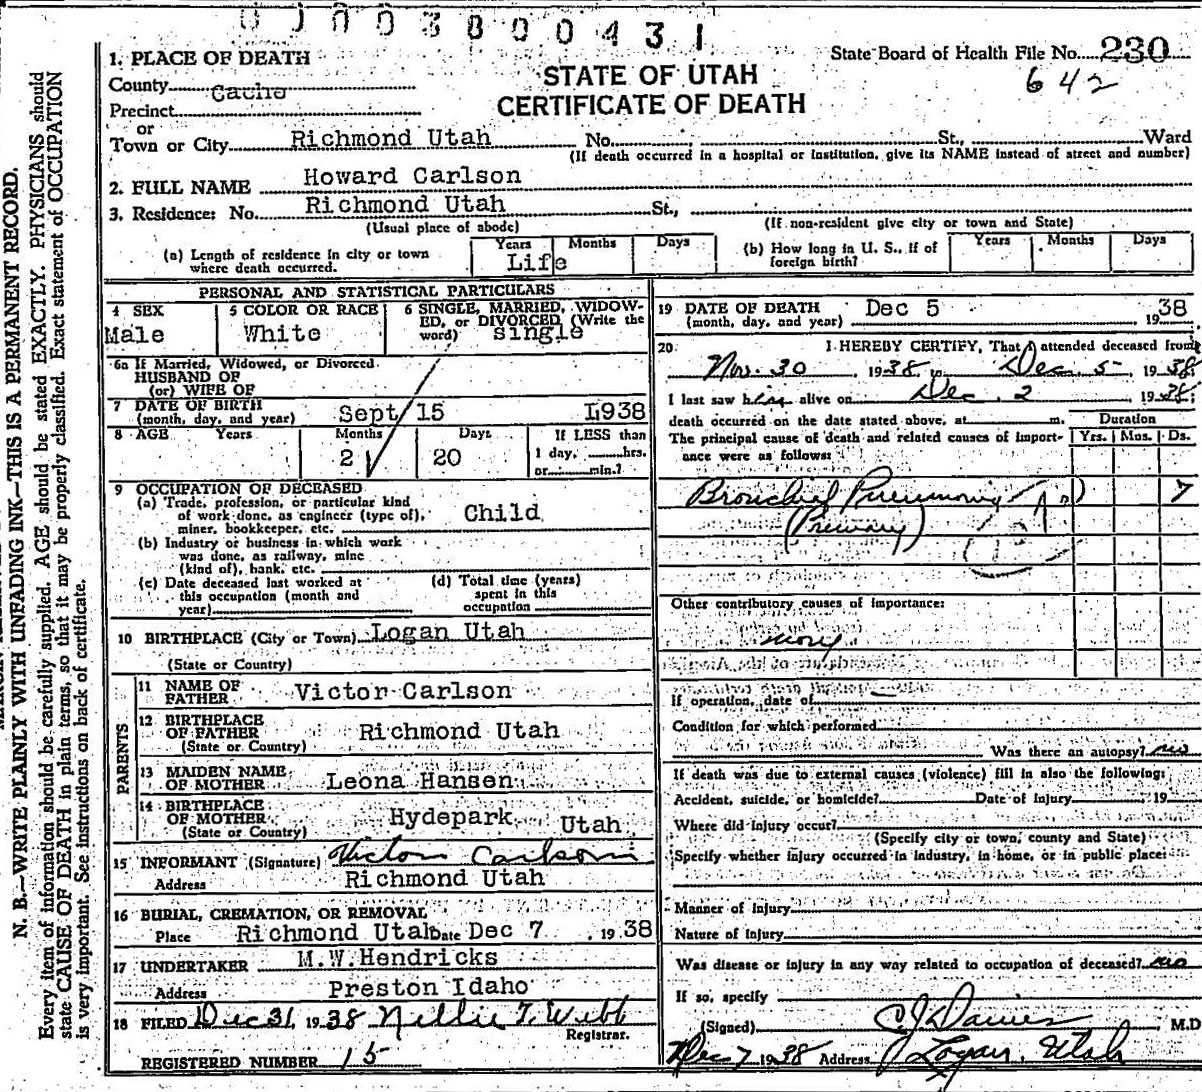 0 1 0 0 3 8 0 0 4 3 1
State Board of Health File No. 230
642
STATE OF UTAH
CERTIFICATE OF DEATH
1. PLACE OF DEATH
County Cache
Precinct
or
Town or City Richmond Utah No. St., Ward
(If death occurred in a hospital or institution, give its NAME instead of street and number)
2. FULL NAME Howard Carlson
3. Residence: No. Richmond Utah St.,
(Usual place of abode) (If non-resident give city or town and State)
(a) Length of residence in city or town where death occurred. Years Months Days
Life
(b) How long in U. S., if of foreign birth? Years Months Days
PERSONAL AND STATISTICAL PARTICULARS
4 SEX 5 COLOR OR RACE 6 SINGLE, MARRIED, WIDOW-
ED, or DIVORCED (Write the
word) single
Male White
6a If Married, Widowed, or Divorced
HUSBAND OF
(or) WIFE OF
7 DATE OF BIRTH
(month, day, and year) Sept 15 1938
8 AGE Years Months Days If LESS than
2 20 1 day, hrs.
or min.?
9 OCCUPATION OF DECEASED
(a) Trade, profession, or particular kind
of work done, as engineer (type of),
miner, bookkeeper, etc. Child
(b) Industry or business in which work
was done, as railway, mine
(kind of), bank, etc.
(c) Date deceased last worked at
this occupation (month and
year)
(d) Total time (years)
spent in this
occupation
10 BIRTHPLACE (City or Town) Logan Utah
(State or Country)
PARENTS
11 NAME OF
FATHER Victor Carlson
12 BIRTHPLACE
OF FATHER Richmond Utah
(State or Country)
13 MAIDEN NAME
OF MOTHER Leona Hansen
14 BIRTHPLACE
OF MOTHER Hydepark Utah
(State or Country)
15 INFORMANT (Signature) Victor Carlson
Address Richmond Utah
16 BURIAL, CREMATION, OR REMOVAL
Place Richmond Utah Date Dec 7 1938
17 UNDERTAKER M.W.Hendricks
Address Preston Idaho
18 FILED Dec 31, 1938 Nellie T. Webb
Registrar.
REGISTERED NUMBER 15
19 DATE OF DEATH Dec 5 1938
(month, day, and year)
20 I HEREBY CERTIFY, That I attended deceased from
Nov. 30 1938 to Dec. 5 1938
I last saw him alive on Dec. 2 1938;
death occurred on the date stated above, at m.
The principal cause of death and related causes of import-
ance were as follows:
Duration
Yrs. Mos. Ds.
Bronchial Pneumonia 7
(Primary)
Other contributory causes of importance:
If operation, date of
Condition for which performed
Was there an autopsy? no
If death was due to external causes (violence) fill in also the following:
Accident, suicide, or homicide? Date of injury 19
Where did injury occur?
(Specify city or town, county and State)
Specify whether injury occurred in industry, in home, or in public place:
Manner of injury
Nature of injury
Was disease or injury in any way related to occupation of deceased? no
If so, specify
(Signed) C. J. Daines M.D
Dec 7 1938 Address Logan, Utah
N. B.—WRITE PLAINLY WITH UNFADING INK—THIS IS A PERMANENT RECORD.
Every item of information should be carefully supplied. AGE should be stated EXACTLY. PHYSICIANS should
state CAUSE OF DEATH in plain terms, so that it may be properly classified. Exact statement of OCCUPATION
is very important. See instructions on back of certificate.